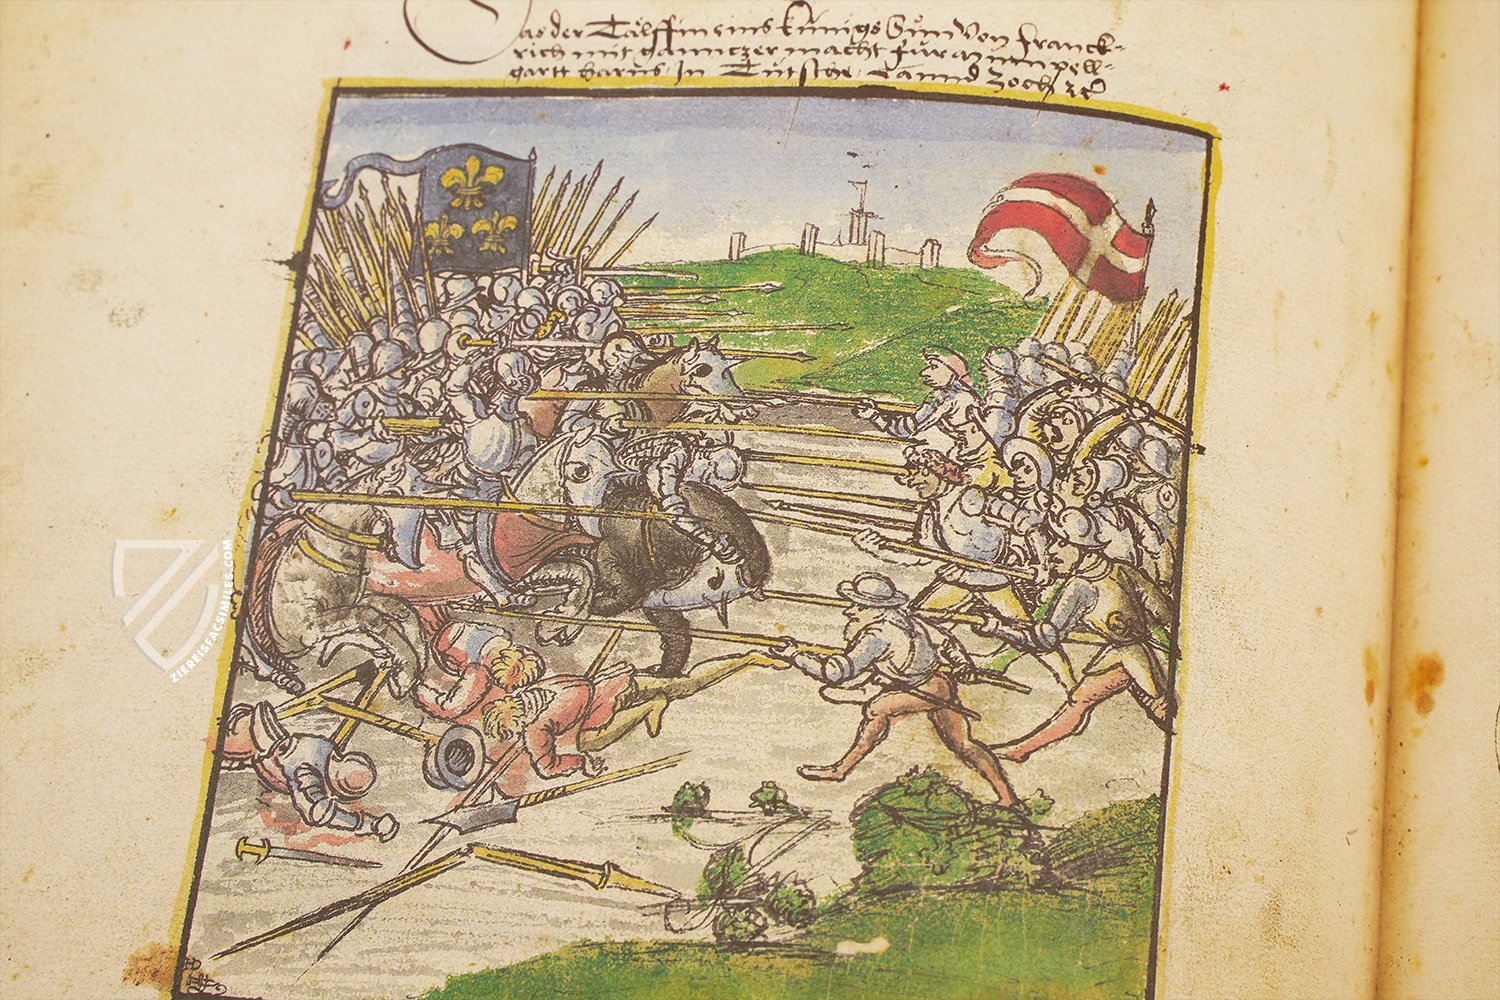 Das der Tälffin eins künigs Sün von franck-
rich mit gantzer macht für a mümpell-
gartt harus In Tütsche Lannd zoch
ZIEREISFACSIMILES.COM